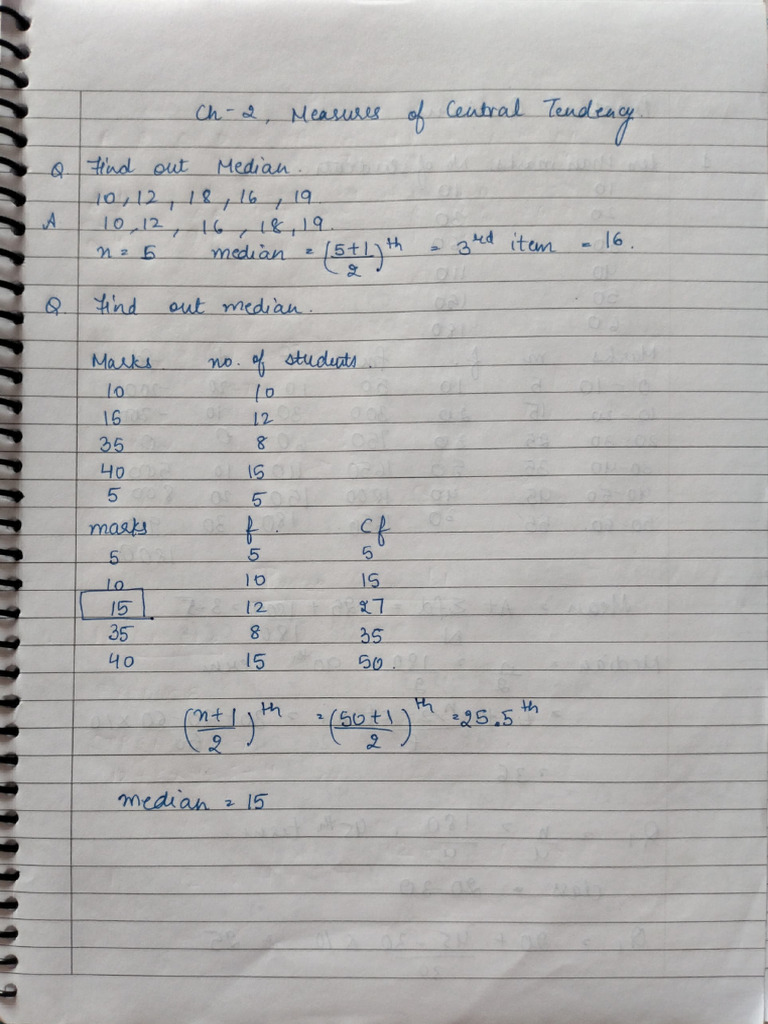 Ch-2, Measures of Central Tendency
Q Find out Median.
10, 12, 18, 16, 19.
A 10, 12, 16, 18, 19.
n = 5 median = (5+1/2)th = 3rd item = 16.
Q. Find out median.
Marks no. of students.
10 10
15 12
35 8
40 15
5 5
marks f. Cf
5 5 5
10 10 15
15 12 27
35 8 35
40 15 50.
(n+1/2)th = (50+1/2)th = 25.5th
median = 15